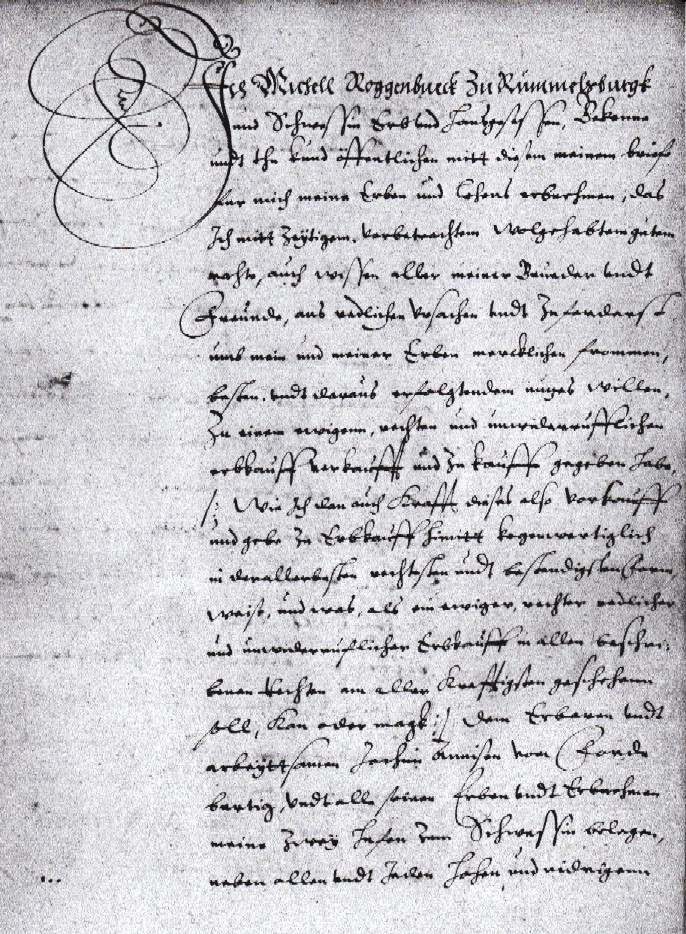 Ich Michell Roggenbuck Zu Rummelsburgk
und Schwessin Erb und Hausgesessen, Bekenne
undt thu kund öffentlichen mitt diesem meinem brieffe
fur mich meine Erben und Lehens erbnehmen, das
Ich mitt Zeytigem, vorbetrachtem Wolgehabtem gutem
rahte, auch wissen aller meiner Brueder undt
Freunde, aus redlichen Ursachen undt Zuforderst
umb mein und meiner Erben mercklichen frommen,
besten, undt daraus erfolgtendem nuzes willen,
Zu einem ewigenn, rechten und unwiderrufflichen
erbkauff verkaufft und zu kauffe gegeben habe,
/: Wie Ich dan auch Krafft dieses also vorkauff
und gebe zu Erbkauff himitt kegenwertiglich
in der allerbesten rechtesten undt bestendigsten Form,
weise, und was, als ein ewiger, rechter redlicher
und unwiderruflicher Erbkauff in allen beschri-
benen Rechten am aller Krefftigsten geschehenn
soll, kan oder magk :/ dem Erbaren undt
arbeyttsamen Jochim vom
undt alle seinen Erben undt Erbnehmen
meine Zwey Hufen zum Schwessin belegen,
neben allen undt Jeden Hohen und nidrigenn